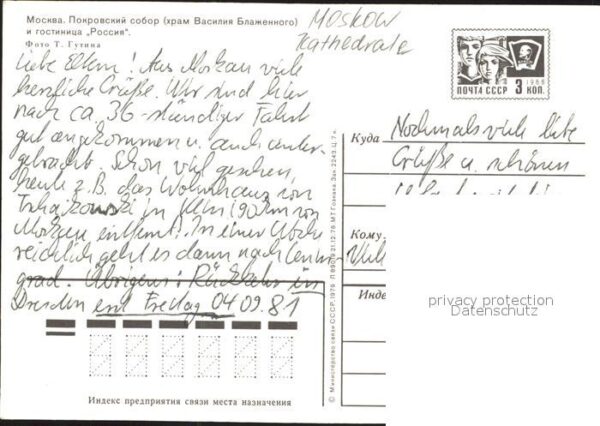 Москва. Покровский собор (храм Василия Блаженного)
и гостиница „Россия".
Фото Т. Гугина
MOSKOW
Kathedrale
Liebe Eltern! Aus Moskau viele
herzliche Grüße. Wir sind hier
nach ca. 36-stündiger Fahrt
gut angekommen u. auch unter-
gebracht. Schon viel gesehen,
heute z.B. das Wohnhaus von
Tschaikowski in Klin (90 km von
Moskau entfernt). In einer Woche
reichlich geht es dann nach Lenin-
grad. Übrigens: Rückkehr in
Dresden erst Freitag 04.09.81
ПОЧТА СССР 3 КОП.
1966
Куда
Nochmals viele liebe
Grüße u. schönen
Кому
Инде
privacy protection
Datenschutz
Индекс предприятия связи места назначения
© Министерство связи СССР. 1978
МТ Гознака. Зак. 2243. Ц. 7 к.